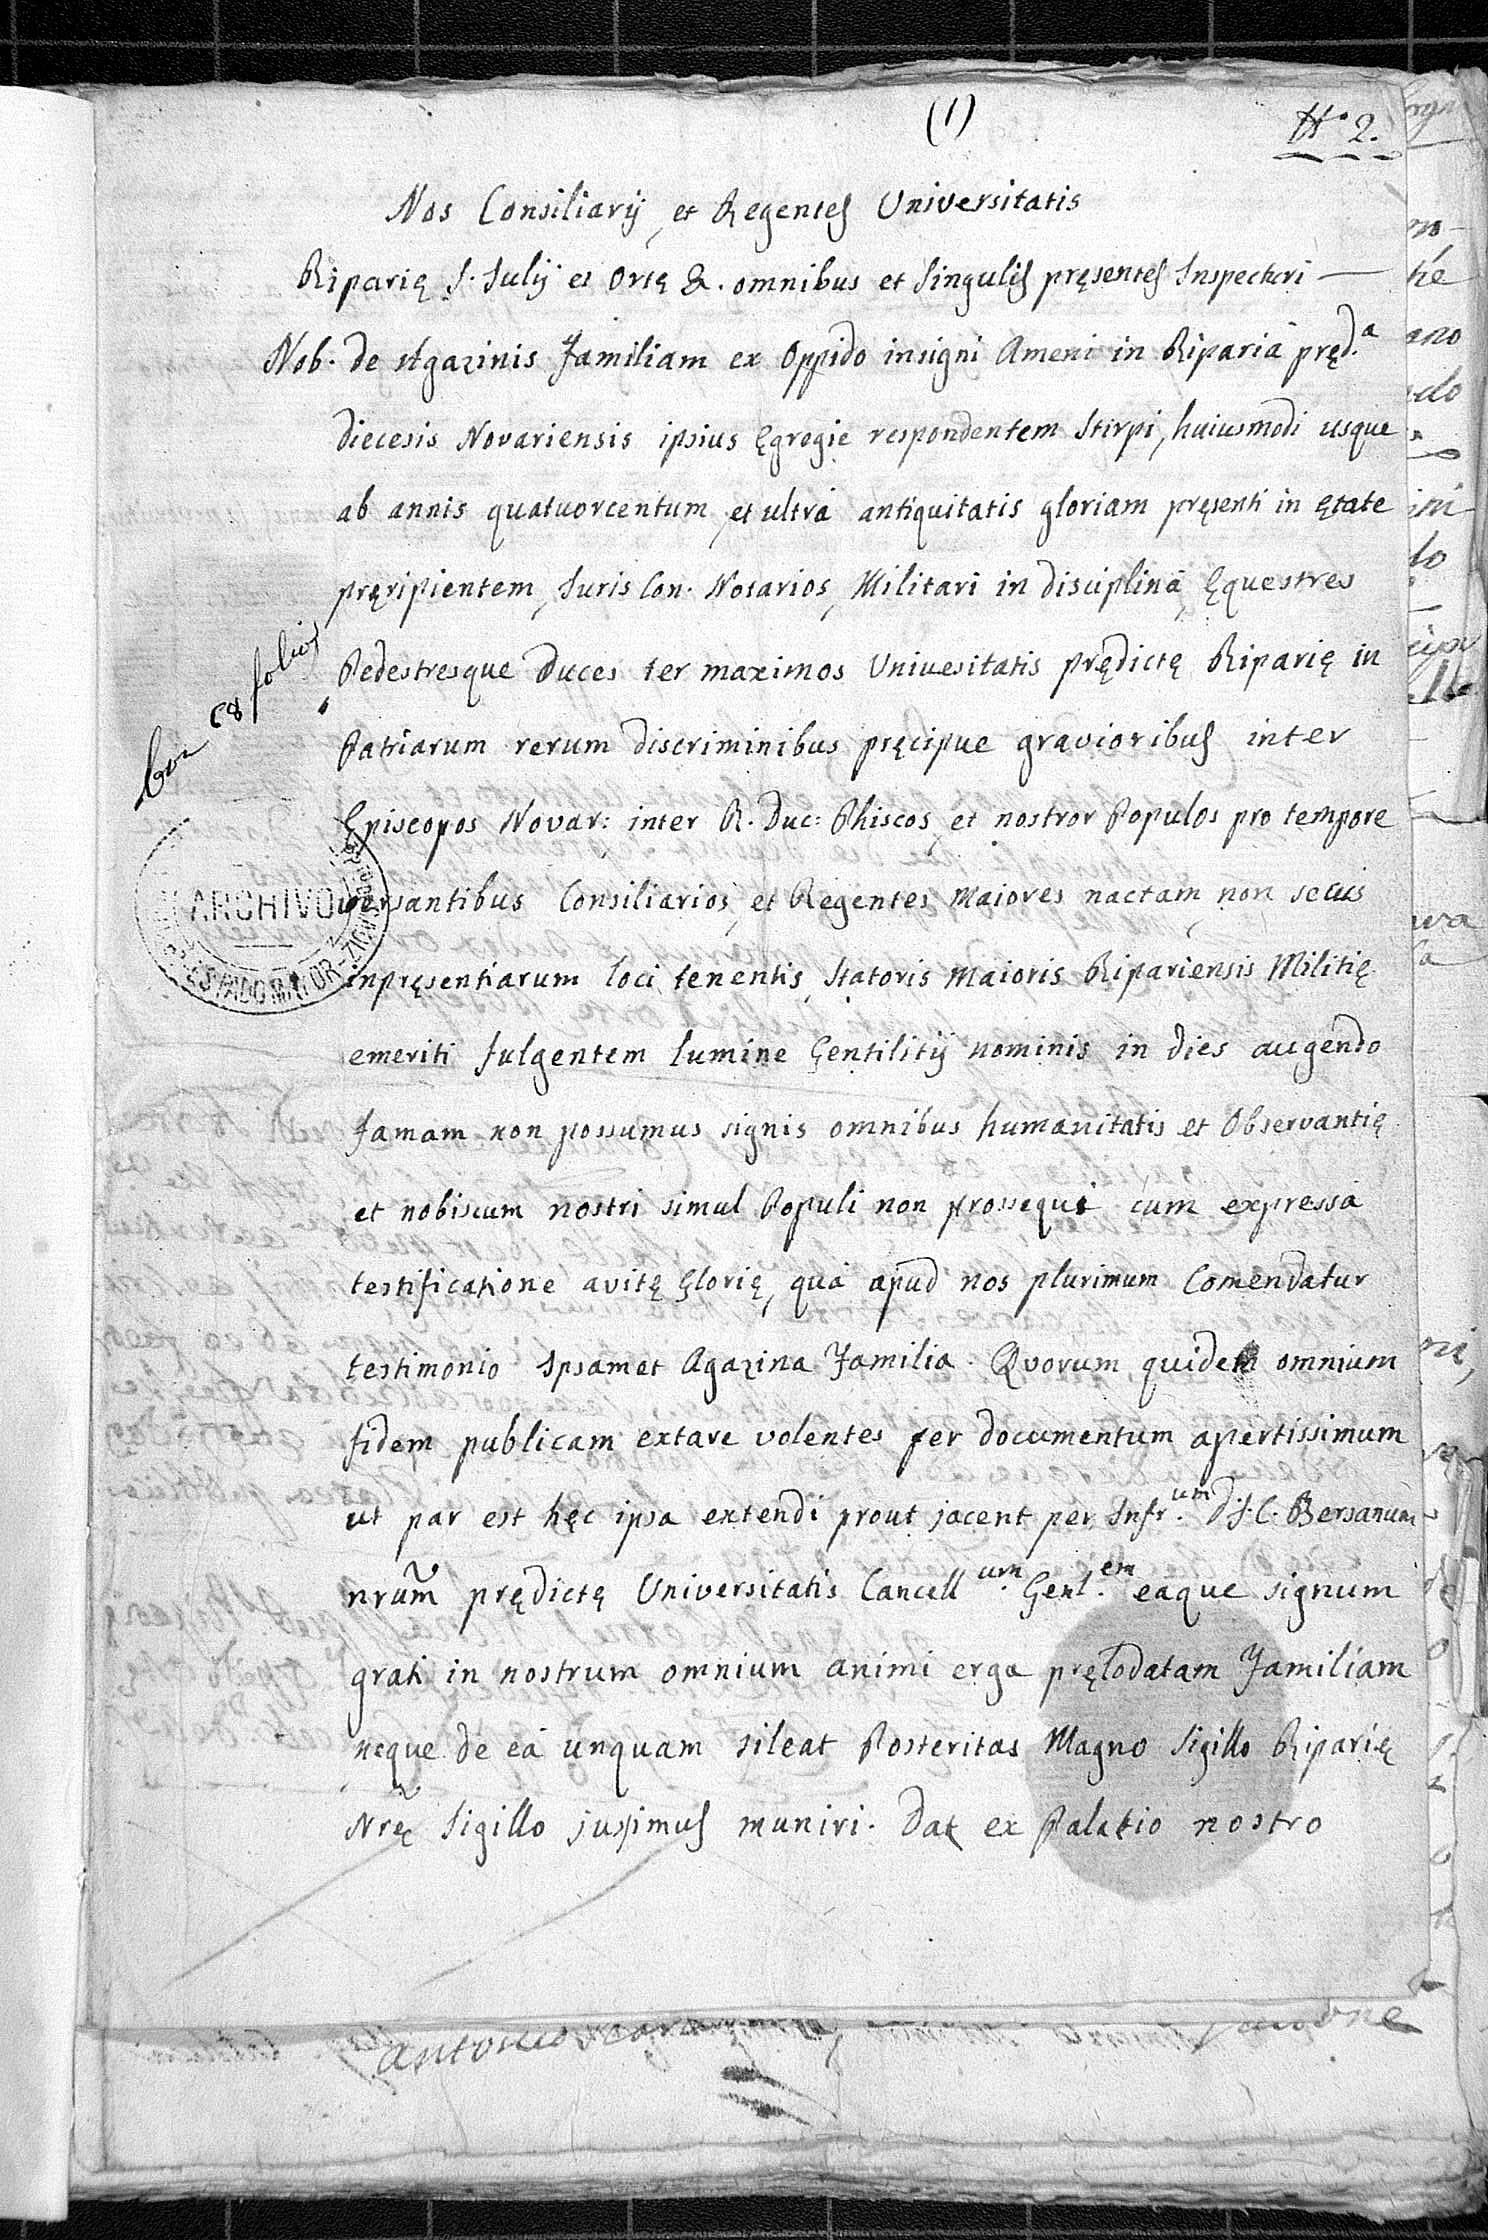 (1)
N.º 2.
Nos Consiliarij, et Regentes Universitatis
Riparię S. Julij et Ortę &. omnibus et singulis pręsentes Inspecturi —
Nob. de Agazinis Familiam ex Oppido insigni Ameni in Ripariâ pręd.ª
diecesis Novariensis ipsius Ęgregie respondentem Stirpi, huiusmodi usque
ab annis quatuorcentum, et ultrà antiquitatis gloriam pręsenti in ętate
pręripientem, Juris Con. Notarios, Militari in disciplinâ, Ęquestres
Pedestresque Duces ter maximos Univesitatis prędictę Riparię in
Patriarum rerum discriminibus pręcipue gravioribus inter
Episcopos Novar: inter R. Duc: Phiscos, et nostror Populos pro tempore
versantibus Consiliarios, et Regentes Maiores nactam, non secùs
inpręsentiarum loci tenentis, Statoris Maioris Ripariensis Militię
emeriti fulgentem lumine Gentilitij nominis in dies augendo
famam non possumus signis omnibus humanitatis et Observantię
et nobiscum nostri simul Populi non prossequi cum expressâ
testificatione avitę Glorię, quâ apud nos plurimum Comendatur
testimonio Ipsamet Agazina Familia. Quorum quidem omnium
fidem publicam extare volentes per documentum apertissimum
ut par est hęc ipsa extendi prout jacent per Infr.um D. J. C. Bersanum
nrum prędictę Universitatis Cancell.um Genl.em eaque signum
grati in nostrum omnium animi erga pręlodatam Familiam
neque de eâ unquam sileat Posteritas Magno Sigillo Riparię
Nrę Sigillo jussimus muniri. Dat ex Palatio nostro
folios
ARCHIVO
ESTADO MAYOR
Antonio